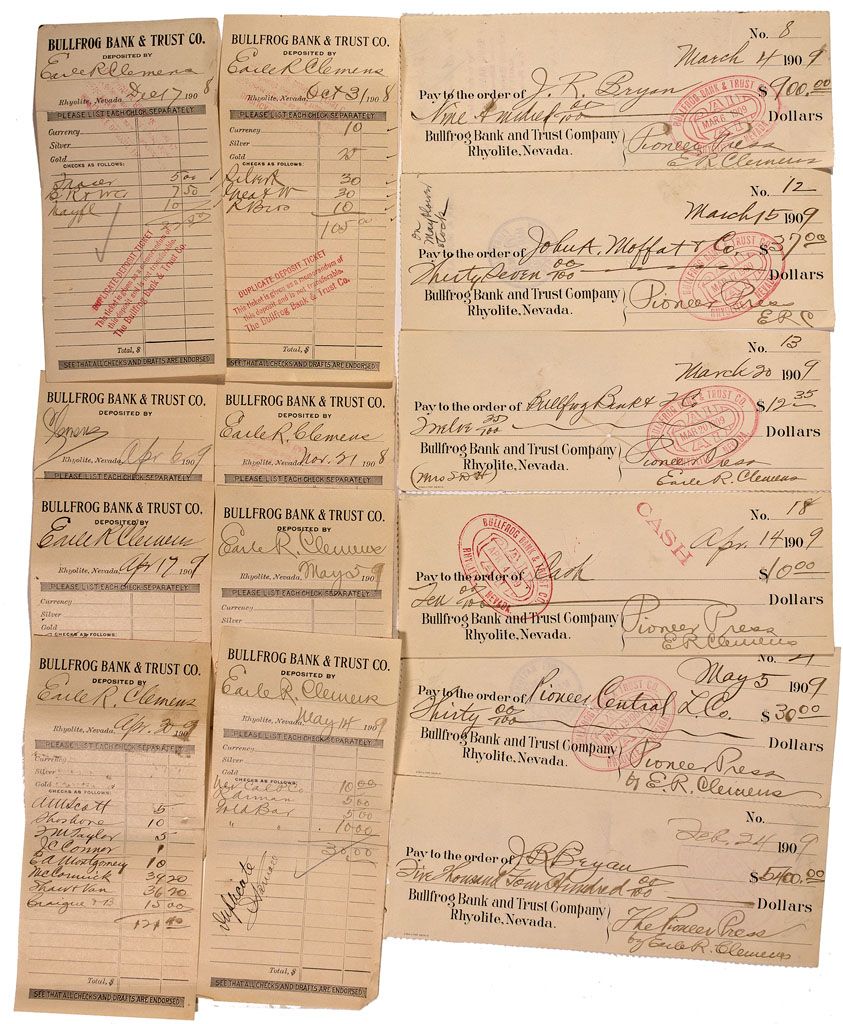 BULLFROG BANK & TRUST CO.
DEPOSITED BY
Earle R Clemens
Rhyolite, Nevada, Dec 17 1908
PLEASE LIST EACH CHECK SEPARATELY
Currency
Silver
Gold
CHECKS AS FOLLOWS:
5 00
7 50
Mayfl 10
DUPLICATE DEPOSIT TICKET
This ticket is given as a memorandum of
this deposit and is not transferable.
The Bullfrog Bank & Trust Co.
Total, $
SEE THAT ALL CHECKS AND DRAFTS ARE ENDORSED
BULLFROG BANK & TRUST CO.
DEPOSITED BY
Earle R Clemens
Rhyolite, Nevada, Oct 31 1908
PLEASE LIST EACH CHECK SEPARATELY
Currency 10
Silver
Gold 25
CHECKS AS FOLLOWS:
30
30
R Bros 10
105 00
DUPLICATE DEPOSIT TICKET
This ticket is given as a memorandum of
this deposit and is not transferable.
The Bullfrog Bank & Trust Co.
Total, $
SEE THAT ALL CHECKS AND DRAFTS ARE ENDORSED
BULLFROG BANK & TRUST CO.
DEPOSITED BY
Clemens
Rhyolite, Nevada, Apr 6 1909
PLEASE LIST EACH CHECK SEPARATELY
BULLFROG BANK & TRUST CO.
DEPOSITED BY
Earle R. Clemens
Rhyolite, Nevada, Nov. 21 1908
PLEASE LIST EACH CHECK SEPARATELY
BULLFROG BANK & TRUST CO.
DEPOSITED BY
Earle R Clemens
Rhyolite, Nevada, Apr 17 1909
PLEASE LIST EACH CHECK SEPARATELY
Currency
Silver
Gold
CHECKS AS FOLLOWS:
BULLFROG BANK & TRUST CO.
DEPOSITED BY
Earle R. Clemens
Rhyolite, Nevada, May 5 1909
PLEASE LIST EACH CHECK SEPARATELY
Currency
Silver
BULLFROG BANK & TRUST CO.
DEPOSITED BY
Earle R. Clemens
Rhyolite, Nevada, Apr. 30 1909
PLEASE LIST EACH CHECK SEPARATELY
Currency
Silver
Gold
CHECKS AS FOLLOWS:
A W Scott 5
Shoshone 10
J M Taylor 5
J C Connor 1
E A Montgomery 10
McCormick 39 20
Shaw & Van 36 20
Craigue & B 15 00
121 40
Total, $
SEE THAT ALL CHECKS AND DRAFTS ARE ENDORSED
BULLFROG BANK & TRUST CO.
DEPOSITED BY
Earle R. Clemens
Rhyolite, Nevada, May 14 1909
PLEASE LIST EACH CHECK SEPARATELY
Currency
Silver
Gold
CHECKS AS FOLLOWS:
Nev Cal & Co 10 00
5 00
Gold Bar 5 00
" " 10 00
30 00
Duplicate
Total, $
SEE THAT ALL CHECKS AND DRAFTS ARE ENDORSED
No. 8
March 4 1909
Pay to the order of J. R. Bryan $900.00
Nine Hundred 00/100 Dollars
Bullfrog Bank and Trust Company
Rhyolite, Nevada.
Pioneer Press
E R Clemens
BULLFROG BANK & TRUST CO.
PAID
MAR 6 1909
No. 12
March 15 1909
on Mayflower stock
Pay to the order of John A. Moffat & Co. $37 00
Thirty Seven 00/100 Dollars
Bullfrog Bank and Trust Company
Rhyolite, Nevada.
Pioneer Press
E R C
No. 13
March 20 1909
Pay to the order of Bullfrog Bank & T Co $12 35
Twelve 35/100 Dollars
Bullfrog Bank and Trust Company
Rhyolite, Nevada.
Pioneer Press
Earle R. Clemens
BULLFROG BANK & TRUST CO.
PAID
MAR 20 1909
CASH
No. 18
Apr. 14 1909
Pay to the order of Cash $10 00
Ten 00/100 Dollars
Bullfrog Bank and Trust Company
Rhyolite, Nevada.
Pioneer Press
E R Clemens
BULLFROG BANK & TRUST CO.
PAID
RHYOLITE, NEVADA
May 5 1909
Pay to the order of Pioneer Central L Co. $30 00
Thirty 00/100 Dollars
Bullfrog Bank and Trust Company
Rhyolite, Nevada.
Pioneer Press
by E. R. Clemens
No.
Feb. 24 1909
Pay to the order of J R Bryan $5400.00
Five Thousand Four Hundred 00/100 Dollars
Bullfrog Bank and Trust Company
Rhyolite, Nevada.
The Pioneer Press
by Earle R. Clemens